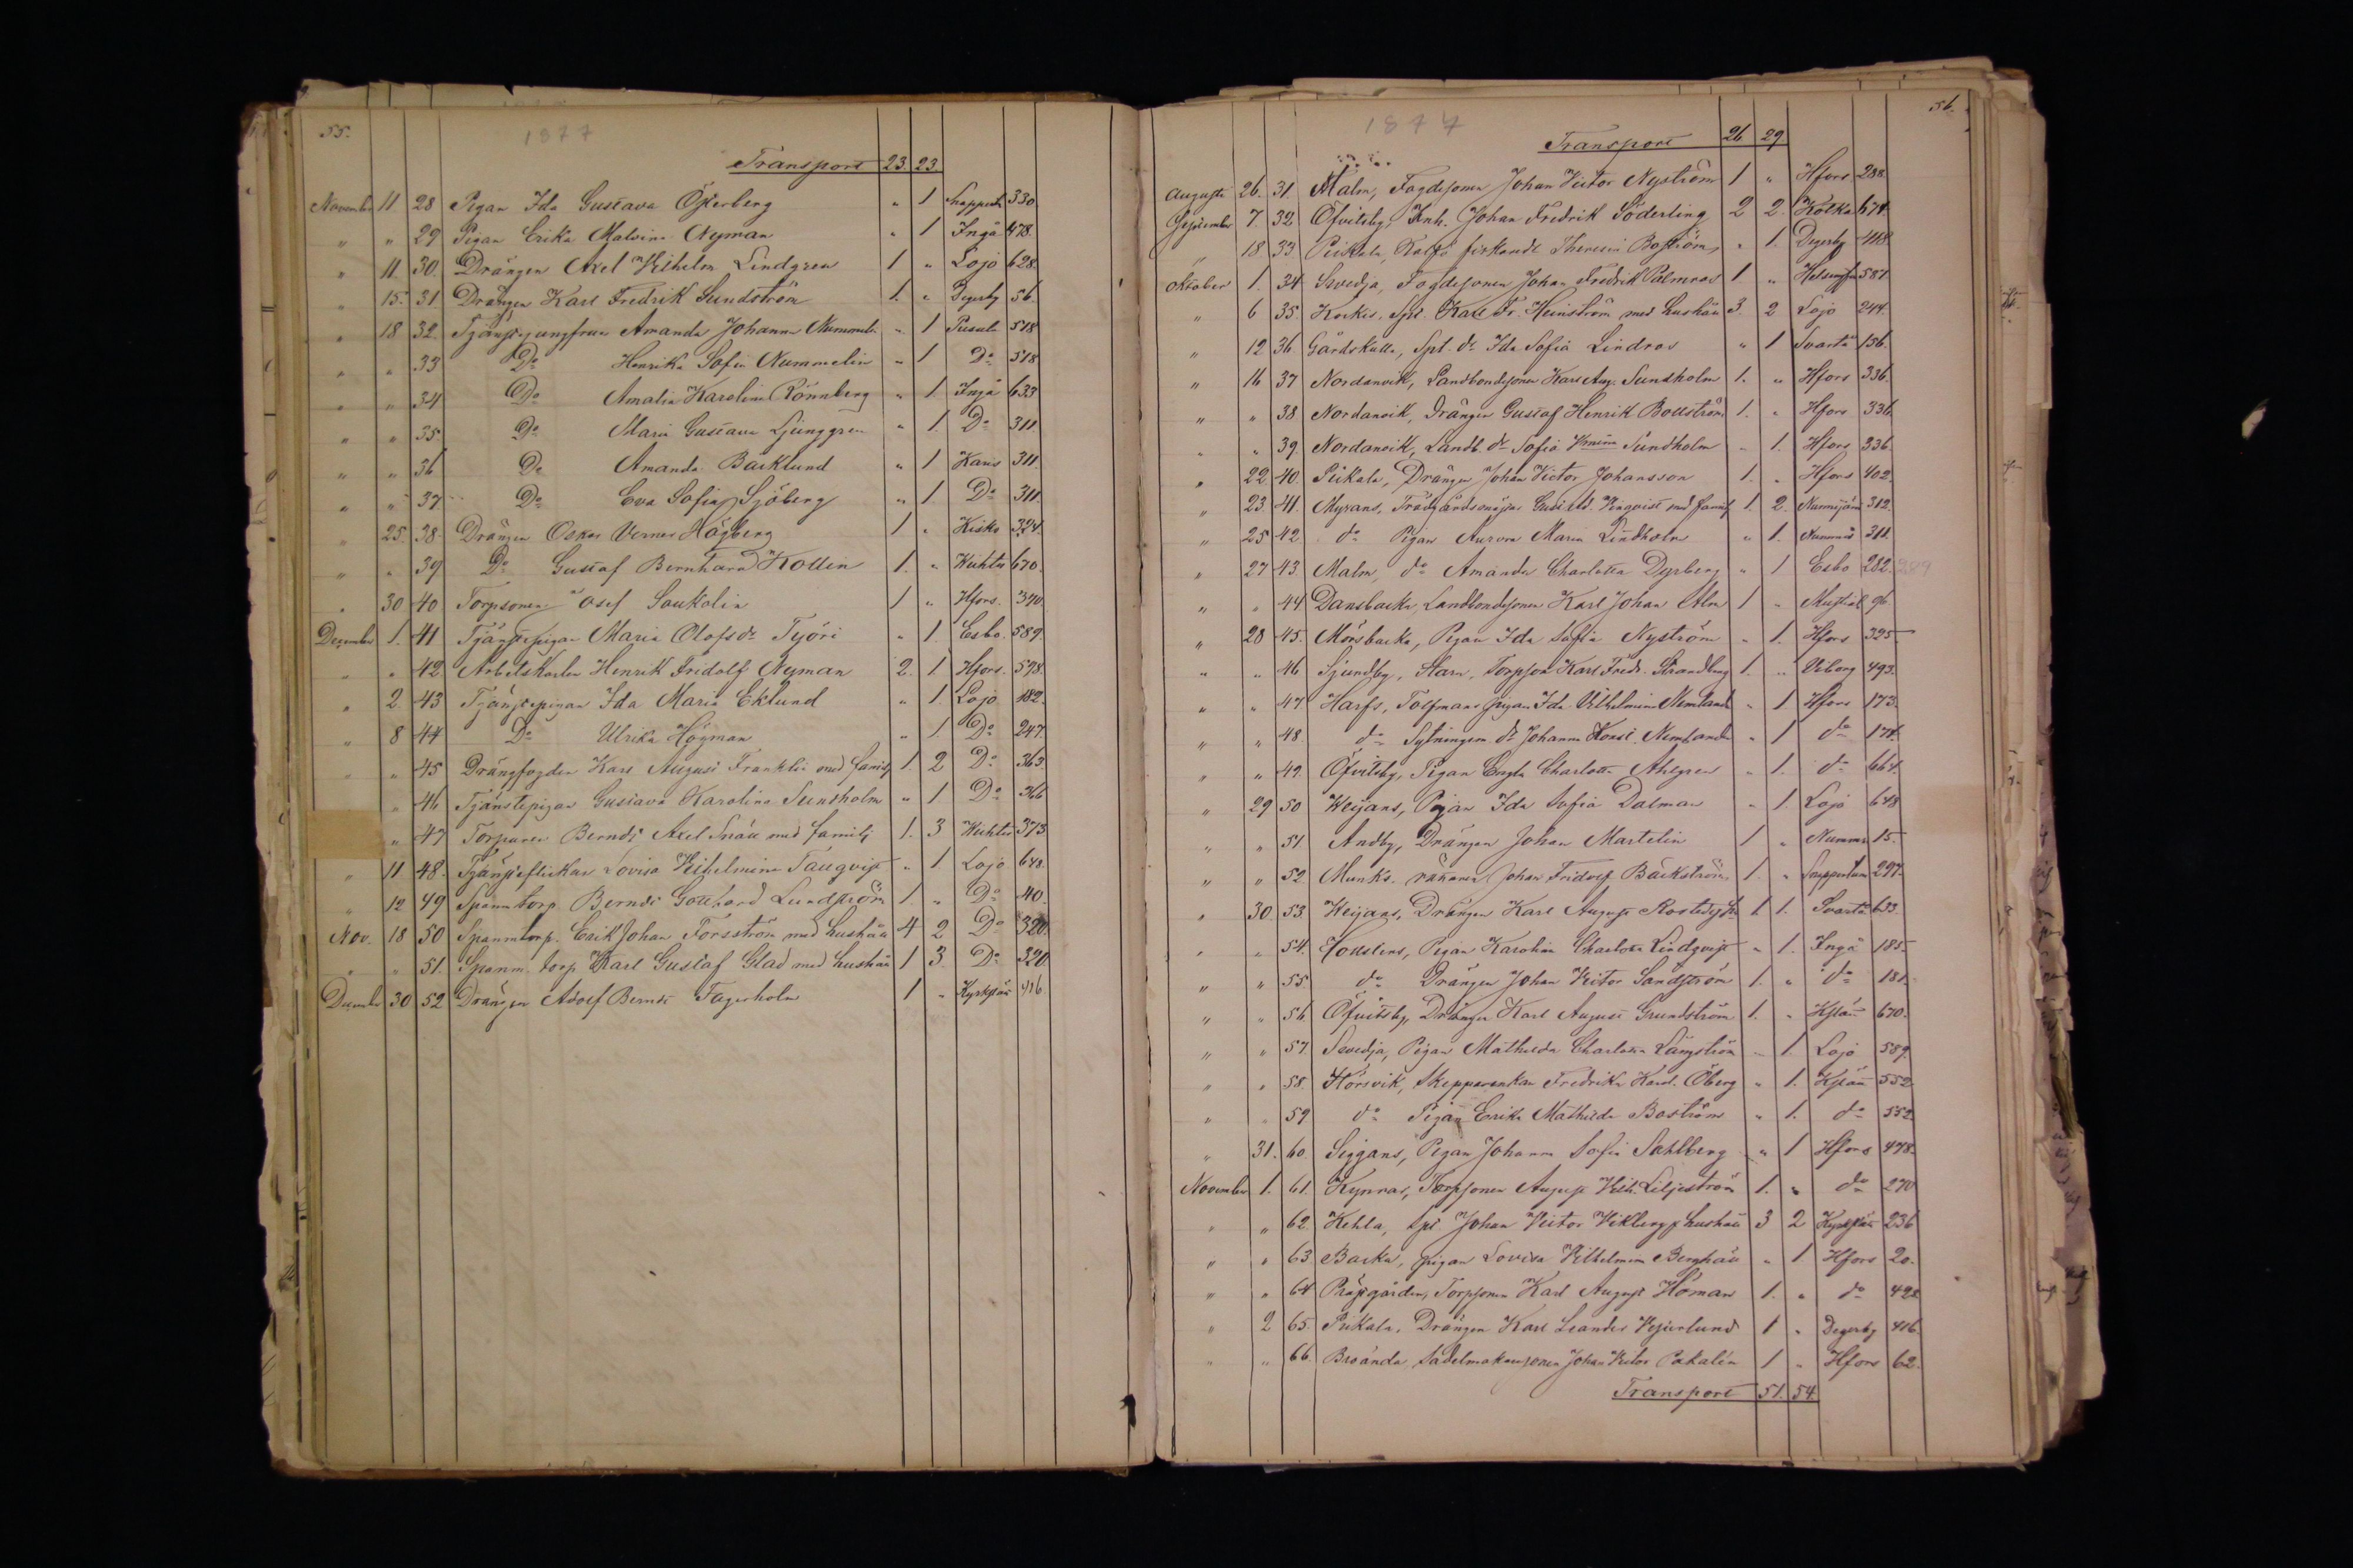 55.
1877
Transport 23. 23
November 11 28 Pigan Ida Gustava Österberg " 1 330
" " 29 Pigan Erika Malvina Nyman " 1 Ingå 478.
" 11 30. Drängen Axel Vilhelm Lindgren 1 " Lojo 628.
" 15. 31 Drängen Karl Fredrik Sundström 1. " Degerby 56.
" 18 32. Tjänstejungfrun Amanda Johanna " 1 Pusula 518
" " 33 Do Henrika Sofia Nummelin " 1 Do 518
" " 34 Do Amalia Karolina Rönnberg " 1 Ingå 633
" " 35 Do Maria Gustava Ljunggren " 1. Do 311.
" " 36 Do Amanda Backlund " 1 Karis 311.
" " 37 Do Eva Sofia Sjöberg " 1. Do 311.
" 25. 38. Drängen Oskar Verner Högberg 1 " Kisko 324.
" " 39 Do Gustaf Bernhard Kollin 1. " Wichtis 670.
" 30 40 Torpsonen Josef Saukolin 1 " Hfors. 390
Dezember 1. 41 Tjänstepigan Maria Olofsdr Työri " 1. Esbo. 589.
" " 42 Arbetskarlen Henrik Fridolf Nyman 2. 1. Hfors. 598.
" 2. 43 Tjänstepigan Ida Maria Eklund " 1. Lojo 182.
" 8 44 Do Ulrika Högman " 1. Do 247.
" " 45 Drängfogden Karl August Franklin med familj 1. 2 Do 363
" 46 Tjänstepigan Gustava Karolina Sundholm " 1. Do 366
" 47 Torparen Berndt Axel Snåu med familj 1. 3 Wichtis 373.
" 11 48. Tjänsteflickan Lovisa Vilhelmina Tangvist " 1 Lojo 648.
" 12 49 Spanm torp. Berndt Gotthard Lundström 1. " Do 40.
Nov. 18 50 Spanmtorp. Erik Johan Forsström med hushåll 4 2 Do 320.
" " 51. Spanm. torp Karl Gustaf Glad med hushåll 1 3 Do 321
December 30 52 Drängen Adolf Berndt Fagerholm 1 " Kyrkslätt 416
56.
1877
Transport 26 29
Augusti 26. 31. Malm, Fogdesonen Johan Victor Nyström 1 " Hfors 288.
September 7. 32. Öfvitsby, Inh. Johan Fredrik Söderling 2 2. Kotka 674.
" 18. 33. Pickala, Theresia Boström " 1. Degerby 418.
Oktober 1. 34 Svedja, Fogdesonen Johan Fredrik Palmroos 1. " 587
" 6 35. Korkis, Spt. Karl Fr. Heinström med hushåll 3. 2 Lojo 244.
" 12 36. Gårdskulla, Spt. dr Ida Sofia Lindroos " 1 Svartå 136.
" 16 37 Nordanvik, Landbondesonen Karl Aug. Sundholm 1. " Hfors 336.
" " 38 Nordanvik, Drängen Gustaf Henrik Bollström 1. " Hfors 336.
" " 39. Nordanvik, Landb. dr Sofia Sundholm " 1. Hfors 336.
" 22 40. Pickala, Drängen Johan Victor Johansson 1. " Hfors 402.
" 23. 41. Myrans, Trädgårdsmäst. med familj 1. 2. 312.
" 25 42. do Pigan Aurora Maria Lindholm " 1. 311.
" 27 43. Malm, do Amanda Charlotta Dyrberg " 1 Esbo 282. 289
" " 44. Dansbacka, Landbondesonen Karl Johan Alm 1 " 96.
" 28 45. Mörsbacka, Pigan Ida Sofia Nyström " 1. Hfors 325
" " 46 Sjundby, Torpson Karl Fredr. Strandberg 1. " Viborg 493.
" " 47 Harfs, Tolfmans pigan Ida Vilhelmina " 1 Hfors 173.
" " 48. do Sytningsm. dr Johanna " 1 do 174.
" " 49. Öfvitsby, Pigan Engla Charlotta Ahlgren " 1. do 664.
" 29 50 Weijans, Pigan Ida Sofia Dalman " 1. Lojo 648
" " 51 Andby, Drängen Johan Martelin 1 " Nummis 15.
" " 52. Munks. Johan Fridolf Bäckström 1. " Snappertuna 297.
" 30. 53. Weijans, Drängen Karl August 1. 1. Svartå 633.
" " 54. Pigan Karolina Charlotta Lindqvist " 1. Ingå 185.
" " 55 do Drängen Johan Victor Sandström 1. " do 181.
" " 56 Öfvitsby, Drängen Karl August Grundström 1. " Kslätt 670.
" " 57 Svedja, Pigan Mathilda Charlotta Långström " 1. Lojo 589.
" " 58. Störsvik, Skepparenkan Fredrika Karol. Öberg " 1. Kslätt 552
" " 59 do Pigan Erika Mathilda Boström " 1. do 552.
" 31. 60. Siggans, Pigan Johanna Sofia Sahlberg " 1 Hfors 478.
November 1. 61. Kynnar, Torpsonen August Vilh. Liljeström 1. " do 270
" " 62. Kehla, Spt Johan Victor Vikberg hushåll 3 2 Kyrkslätt 236
" " 63 Backa, pigan Lovisa Vilhelmina Berghäll " 1 Hfors 20.
" " 64 Prästgården, Torpsonen Karl August Höman 1. " do 428
" 2 65. Pickala, Drängen Karl Leander Vesterlund 1 " Degerby 416.
" " 66. Broända, Sadelmakaresonen Johan Victor Pakalén 1 " Hfors 62.
Transport 51. 54.